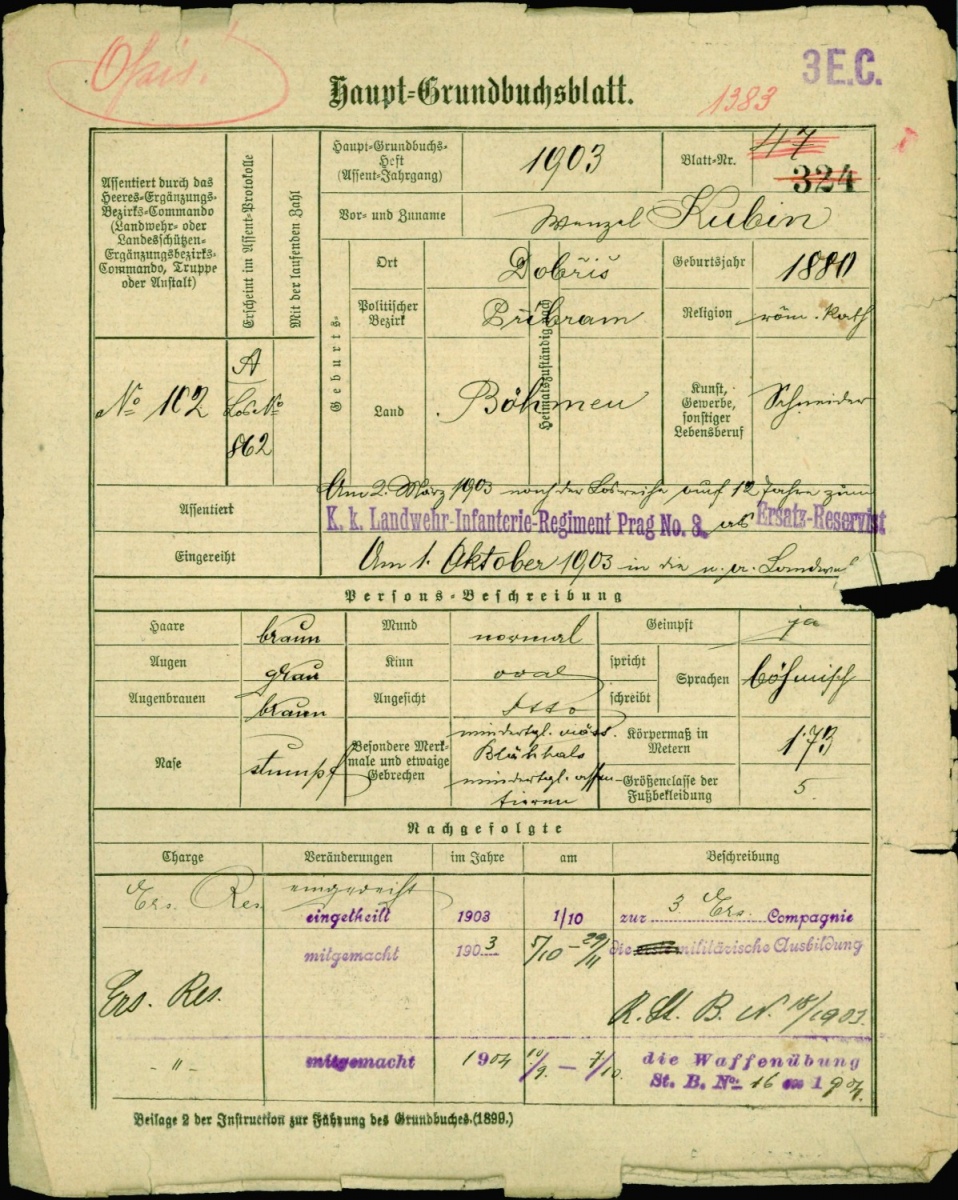 3 E.C.
Haupt-Grundbuchsblatt.
1383
Assentiert durch das
Heeres-Ergänzungs-
Bezirks-Commando
(Landwehr- oder
Landesschützen-
Ergänzungsbezirks-
Commando, Truppe
oder Anstalt)
Erscheint im Assent-Protokolle
Mit der laufenden Zahl
Haupt-Grundbuchs-
Heft
(Assent-Jahrgang)
1903
Blatt-Nr.
47
324
Vor- und Zuname
Wenzel Kubin
Geburts-
Heimatszuständig nach
Ort
Dobřiš
Geburtsjahr
1880
Politischer
Bezirk
Přibram
Religion
röm. Kath
Land
Böhmen
Kunst,
Gewerbe,
sonstiger
Lebensberuf
Schneider
No 102
A
Los No
862
Assentiert
Am 2. März 1903 nach der Losreihe auf 12 Jahre zum
K. k. Landwehr-Infanterie-Regiment Prag No. 8. als Ersatz-Reservist
Eingereiht
Am 1. Oktober 1903 in die n. a. Landw
Persons-Beschreibung
Haare
braun
Mund
normal
Geimpft
ja
Augen
grau
Kinn
oval
spricht
schreibt
Sprachen
böhmisch
Augenbrauen
braun
Angesicht
dtto
Nase
stumpf
Besondere Merk-
male und etwaige
Gebrechen
mindertgl.
Blähhals
mindertgl. assen-
tieren
Körpermaß in
Metern
1·73
Größenclasse der
Fußbekleidung
5.
Nachgefolgte
Charge
Veränderungen
im Jahre
am
Beschreibung
Ers. Res.
eingereiht
eingetheilt 1903 1/10 zur 3 Ers. Compagnie
mitgemacht 1903 5/10 – 29/11 die militärische Ausbildung
Ers. Res.
R. St. B. N. 18/1903.
- " - mitgemacht 1904 10/9. – 7/10. die Waffenübung
St. B. No. 16 1904.
Beilage 2 der Instruction zur Führung des Grundbuches. (1899.)